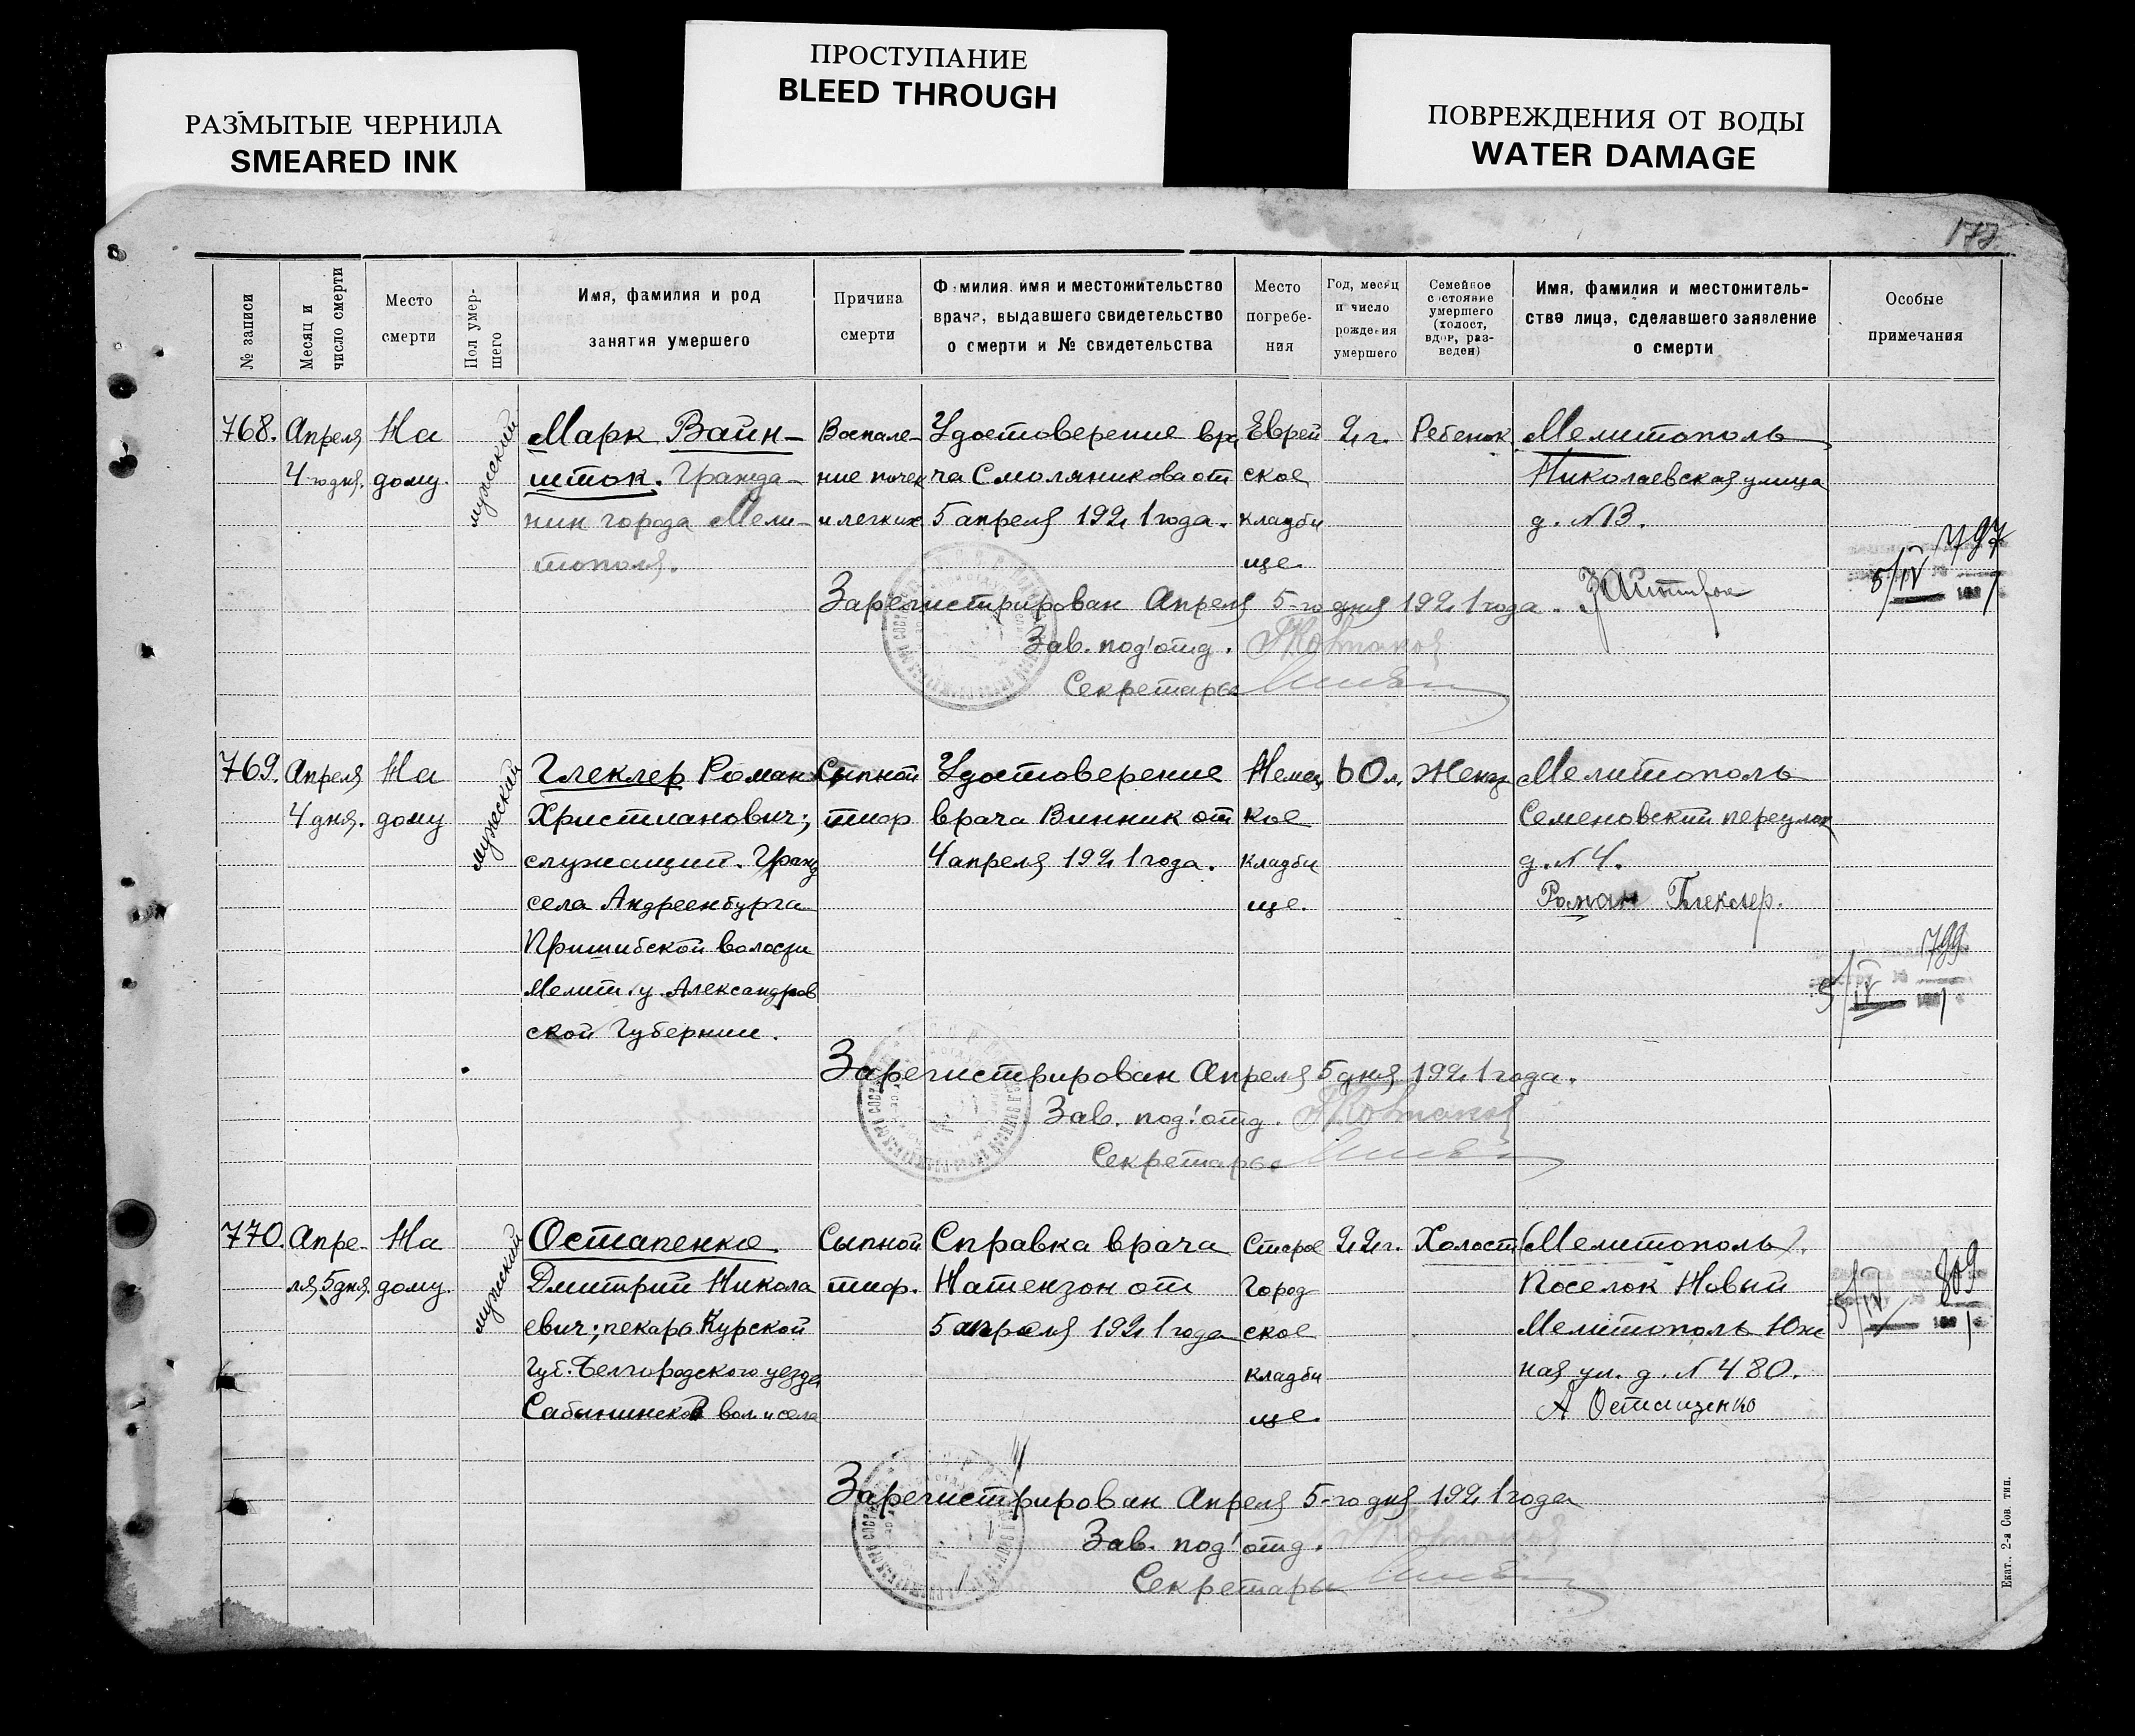 РАЗМЫТЫЕ ЧЕРНИЛА
SMEARED INK
ПРОСТУПАНИЕ
BLEED THROUGH
ПОВРЕЖДЕНИЯ ОТ ВОДЫ
WATER DAMAGE
№ записи
Месяц и
число смерти
Место
смерти
Пол умер-
шего
Имя, фамилия и род
занятия умершего
Причина
смерти
Фамилия, имя и местожительство
врача, выдавшего свидетельство
о смерти и № свидетельства
Место
погребе-
ния
Год, месяц
и число
рождения
умершего
Семейное
состояние
умершего
(холост,
вдов, раз-
веден)
Имя, фамилия и местожитель-
ство лица, сделавшего заявление
о смерти
Особые
примечания
768.
Апреля
4 го дня.
На
дому.
мужский
Марк Вайн-
шток. Гражда-
нин города Мели-
тополя.
Воспале-
ние почек
и легких
Удостоверение вра
ча Смоляникова от
5 апреля 1921 года.
Еврей
ское
кладби
ще
2 г.
Ребенок
Мелитополь
Николаевская улица
д. №13.
797
5/IV
Зарегистрирован Апреля 5-го дня 1921 года.
Зав. под'отд.
Секретарь
769.
Апреля
4 дня.
На
дому
мужский
Глеклер Роман
Христианович;
служащий. Гражд
села Андреенбурга
Пришибской волости
Мелит. у. Александров
ской Губернии.
Сыпной
тиф
Удостоверение
врача Винник от
4 апреля 1921 года.
Немец
кое
кладби
ще.
60 л.
Женат
Мелитополь
Семеновский переулок
д. №4.
Роман Глеклер.
799
5/IV
Зарегистрирован Апреля 5 дня 1921 года.
Зав. под'отд.
Секретарь
770.
Апре-
ля 5 дня.
На
дому.
мужский
Остапенко
Дмитрий Никола
евич; пекарь Курской
Губ. Белгородского уезда
Сабынинской вол. и села
Сыпной
тиф.
Справка врача
Натензон от
5 апреля 1921 года
Старое
Город
ское
кладби
ще
22 г.
Холост
(Мелитополь).
Поселок Новый
Мелитополь Юж
ная ул. д. №480.
809
5/IV
Зарегистрирован Апреля 5-го дня 1921 года
Зав. под'отд.
Секретарь
Екат., 2-я Сов. тип.